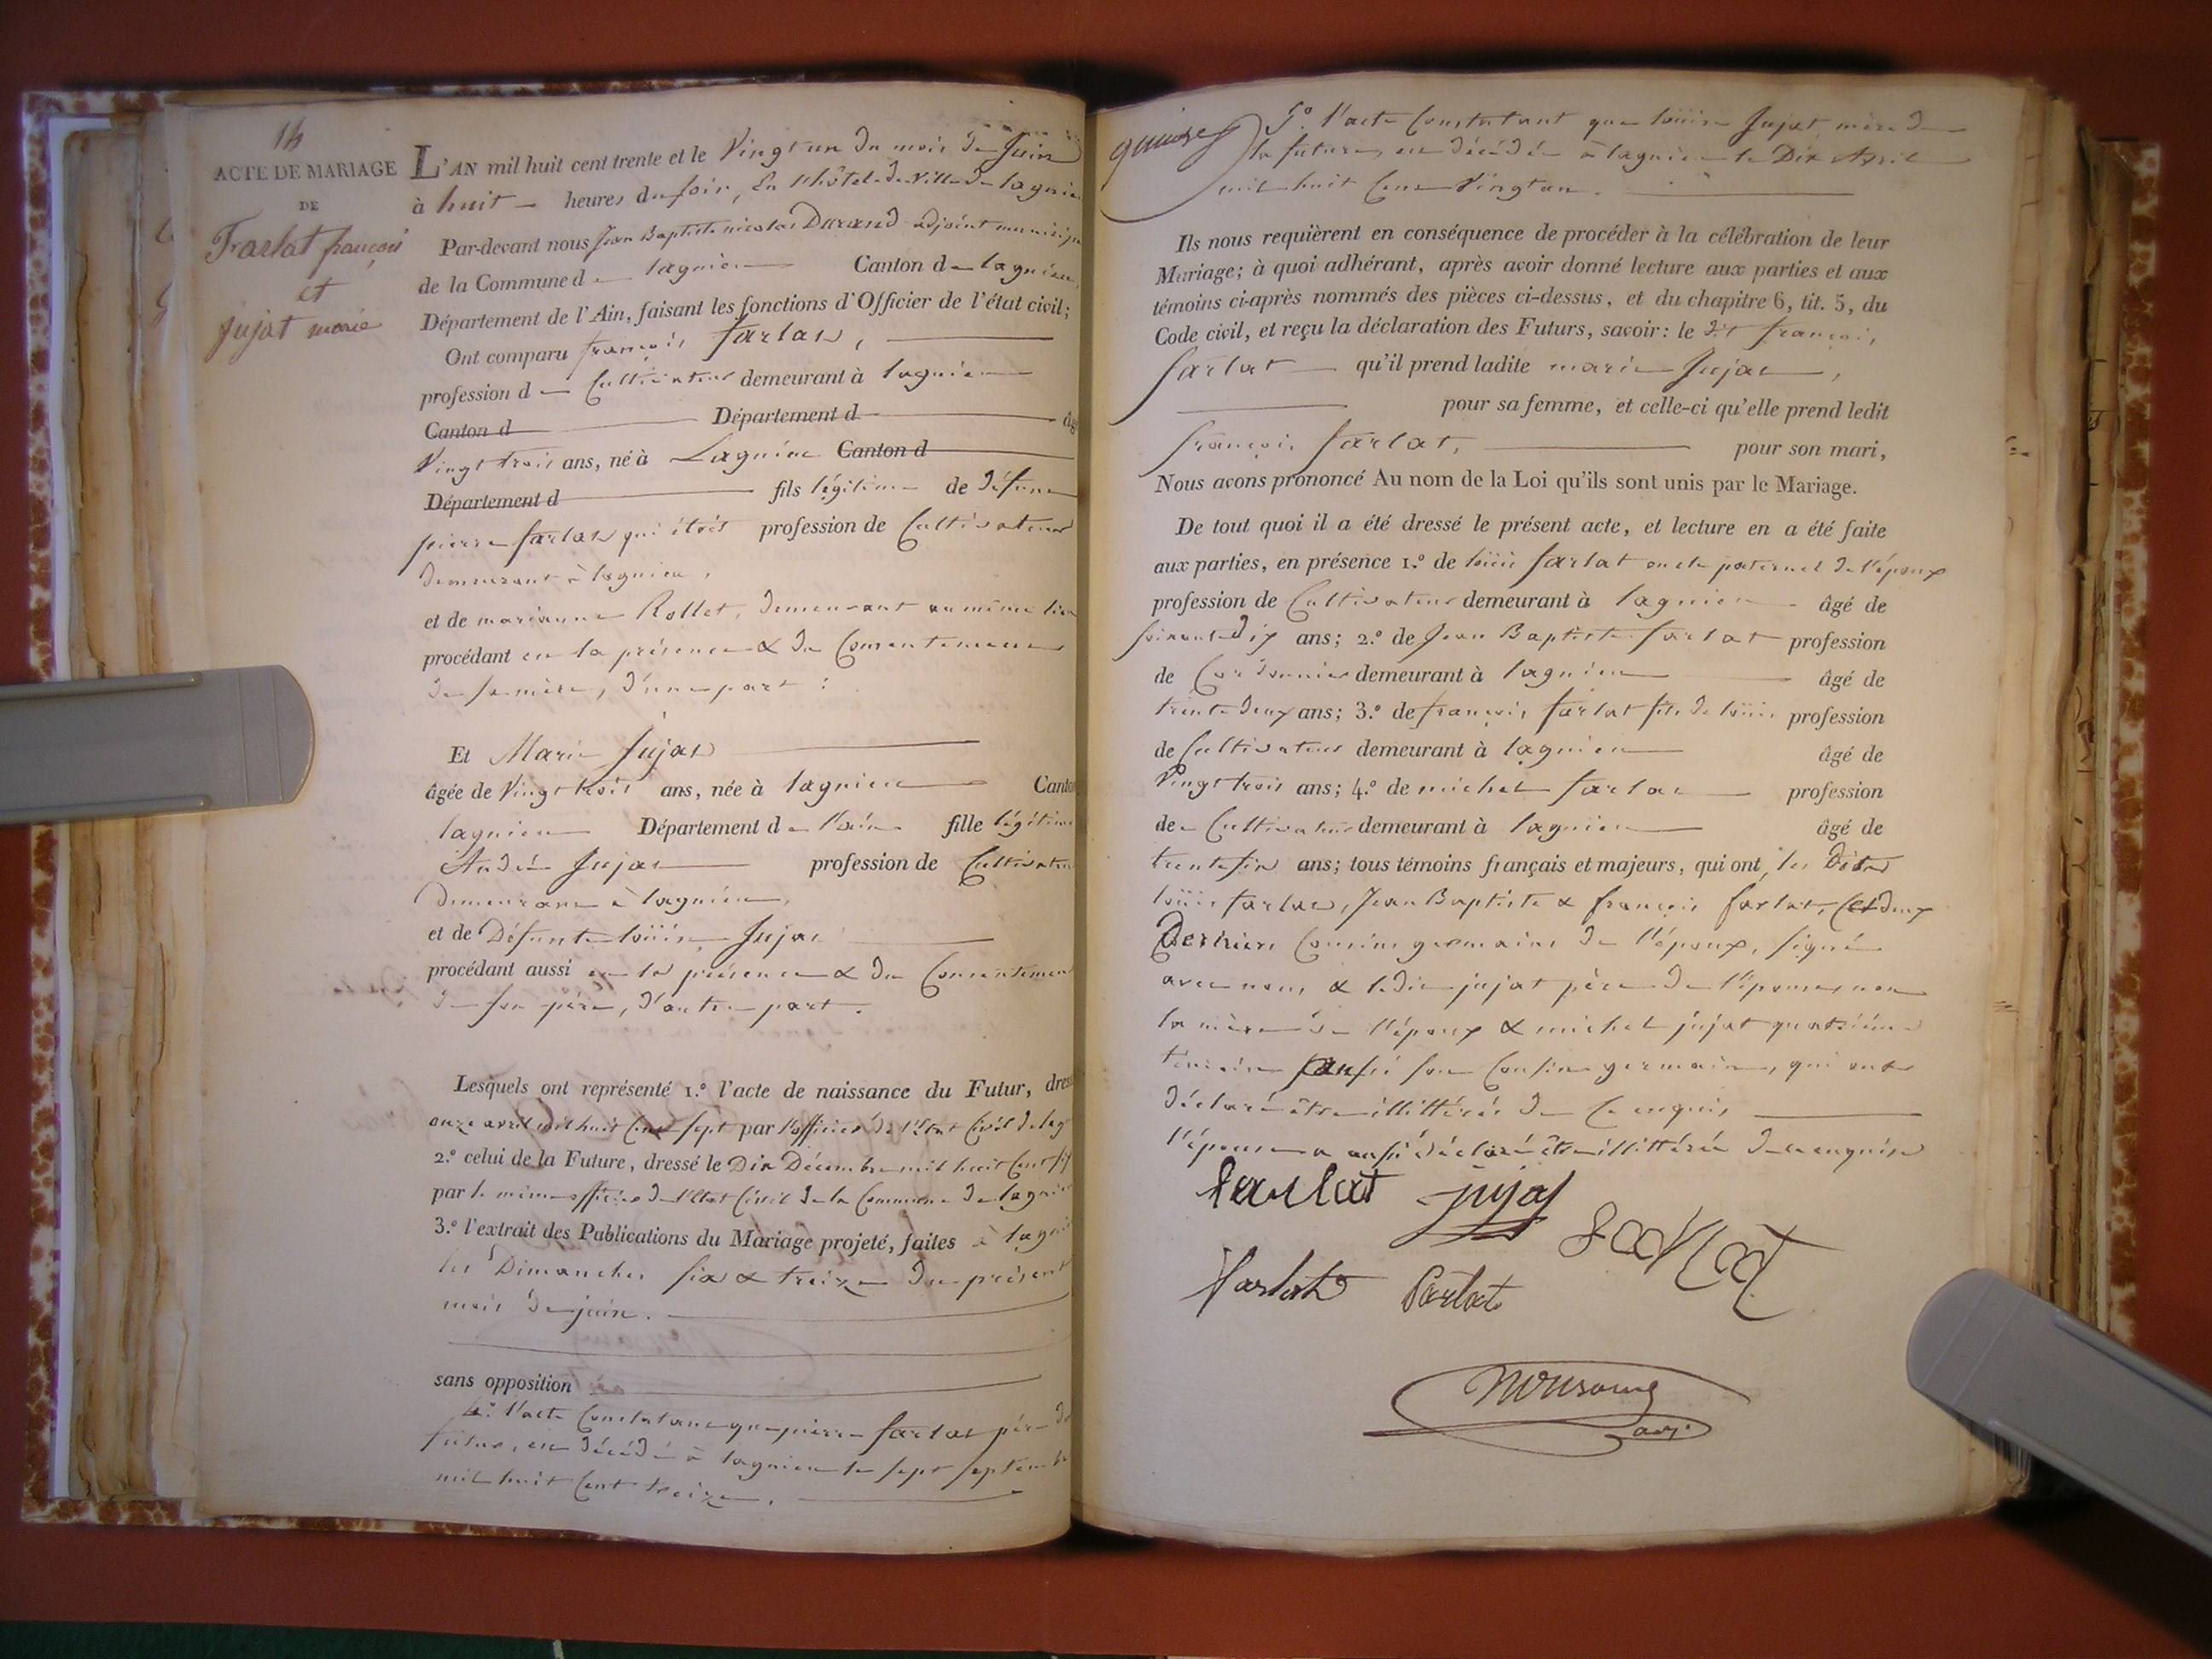 14
ACTE DE MARIAGE
DE
Farlat françois
et
Jujat marie
L'AN mil huit cent trente et le Vingt un du mois de Juin
à huit heures du soir, En l'hôtel de Ville de lagnieu
Par-devant nous Jean Baptiste nicolas Durand adjoint municipal
de la Commune de lagnieu Canton de lagnieu
Département de l'Ain, faisant les fonctions d'Officier de l'état civil;
Ont comparu françois farlat,
profession de Cultivateur demeurant à lagnieu
Canton d Département d âg
Vingt trois ans, né à Lagnieu Canton d
Département d fils légitime de défunt
pierre farlat qui étoit profession de Cultivateur
demeurant à lagnieu,
et de marianne Rollet, demeurant au même lieu
procédant en la présence & du Consentement
de sa mère, d'une part :
Et Marie Jujat
âgée de Vingt trois ans, née à lagnieu Canton
lagnieu Département de l'ain fille légitime
André Jujat profession de Cultivateur
Demeurant à lagnieu,
et de Défunte loüise Jujat
procédant aussi en la présence & du Consentement
de son père, d'autre part.
Lesquels ont représenté 1.º l'acte de naissance du Futur, dres
onze avril mil huit Cent sept par l'officier de l'Etat Civil de lag
2.º celui de la Future, dressé le Dix Décembre mil huit Cent six
par le même officier de l'Etat Civil de la Commune de lagnieu
3.º l'extrait des Publications du Mariage projeté, faites à lagnieu
les Dimanches six & treize du présent
mois de juin.
sans opposition
4.º l'acte Constatant que pierre farlat père du
futur, est décédé à lagnieu le sept septembre
mil huit Cent treize.
quinze
5.º l'acte Constatant que loüise Jujat mère de
la future, est décédée à lagnieu le Dix Avril
mil huit Cent Vingt un.
Ils nous requièrent en conséquence de procéder à la célébration de leur
Mariage; à quoi adhérant, après avoir donné lecture aux parties et aux
témoins ci-après nommés des pièces ci-dessus, et du chapitre 6, tit. 5, du
Code civil, et reçu la déclaration des Futurs, savoir: le dit françois
farlat qu'il prend ladite marie Jujat,
pour sa femme, et celle-ci qu'elle prend ledit
françois farlat, pour son mari,
Nous avons prononcé Au nom de la Loi qu'ils sont unis par le Mariage.
De tout quoi il a été dressé le présent acte, et lecture en a été faite
aux parties, en présence 1.º de loüis farlat oncle paternel de l'époux
profession de Cultivateur demeurant à lagnieu âgé de
soixante dix ans; 2.º de Jean Baptiste farlat profession
de Cordonnier demeurant à lagnieu âgé de
trente deux ans; 3.º de françois farlat fils de loüis profession
de Cultivateur demeurant à lagnieu âgé de
Vingt trois ans; 4.º de michel farlat profession
de Cultivateur demeurant à lagnieu âgé de
trente six ans; tous témoins français et majeurs, qui ont, les dits
loüis farlat, Jean Baptiste & françois farlat, Ces deux
Derniers Cousins germains de l'époux, signé
avec nous & ledit jujat père de l'épouse, non
la mère de l'époux & michel jujat quatrième
témoin aussi son Cousin germain, qui ont
déclaré être illittérés de Ce enquis,
l'épouse a aussi déclaré être illittérée de ce enquise
farlat jujat
farlat
farlat farlat
adj.